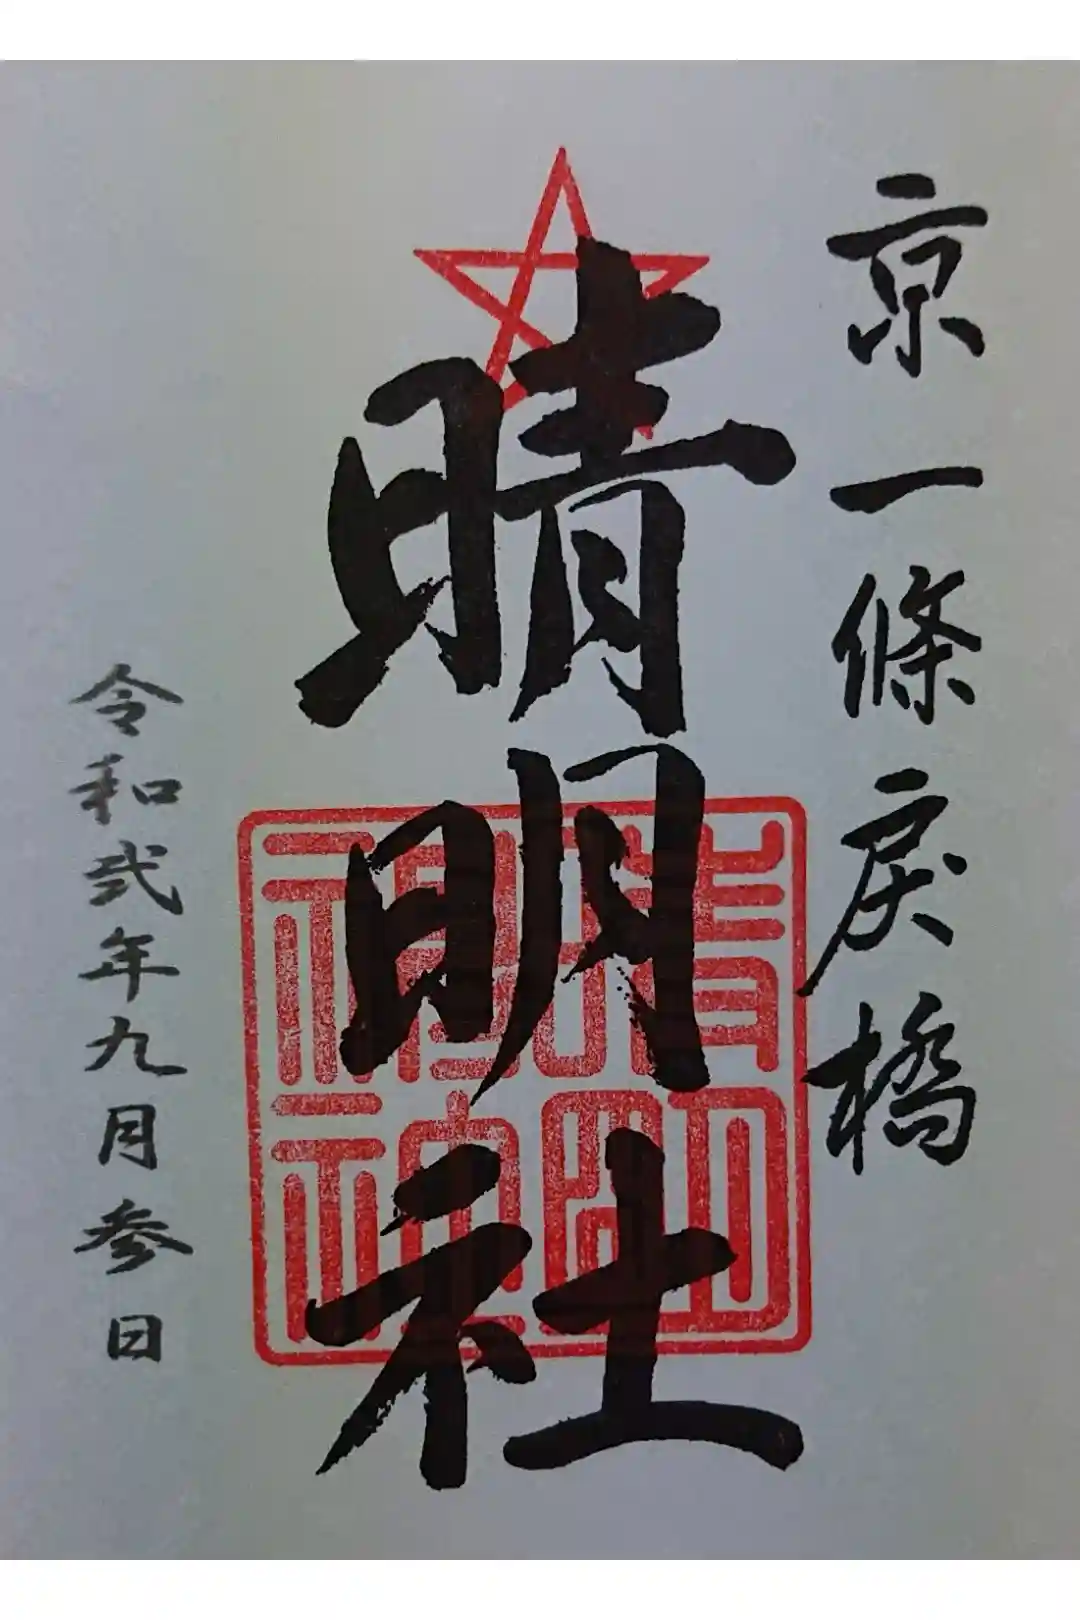 京一條戻橋
晴明社
晴明神社
令和弐年九月参日